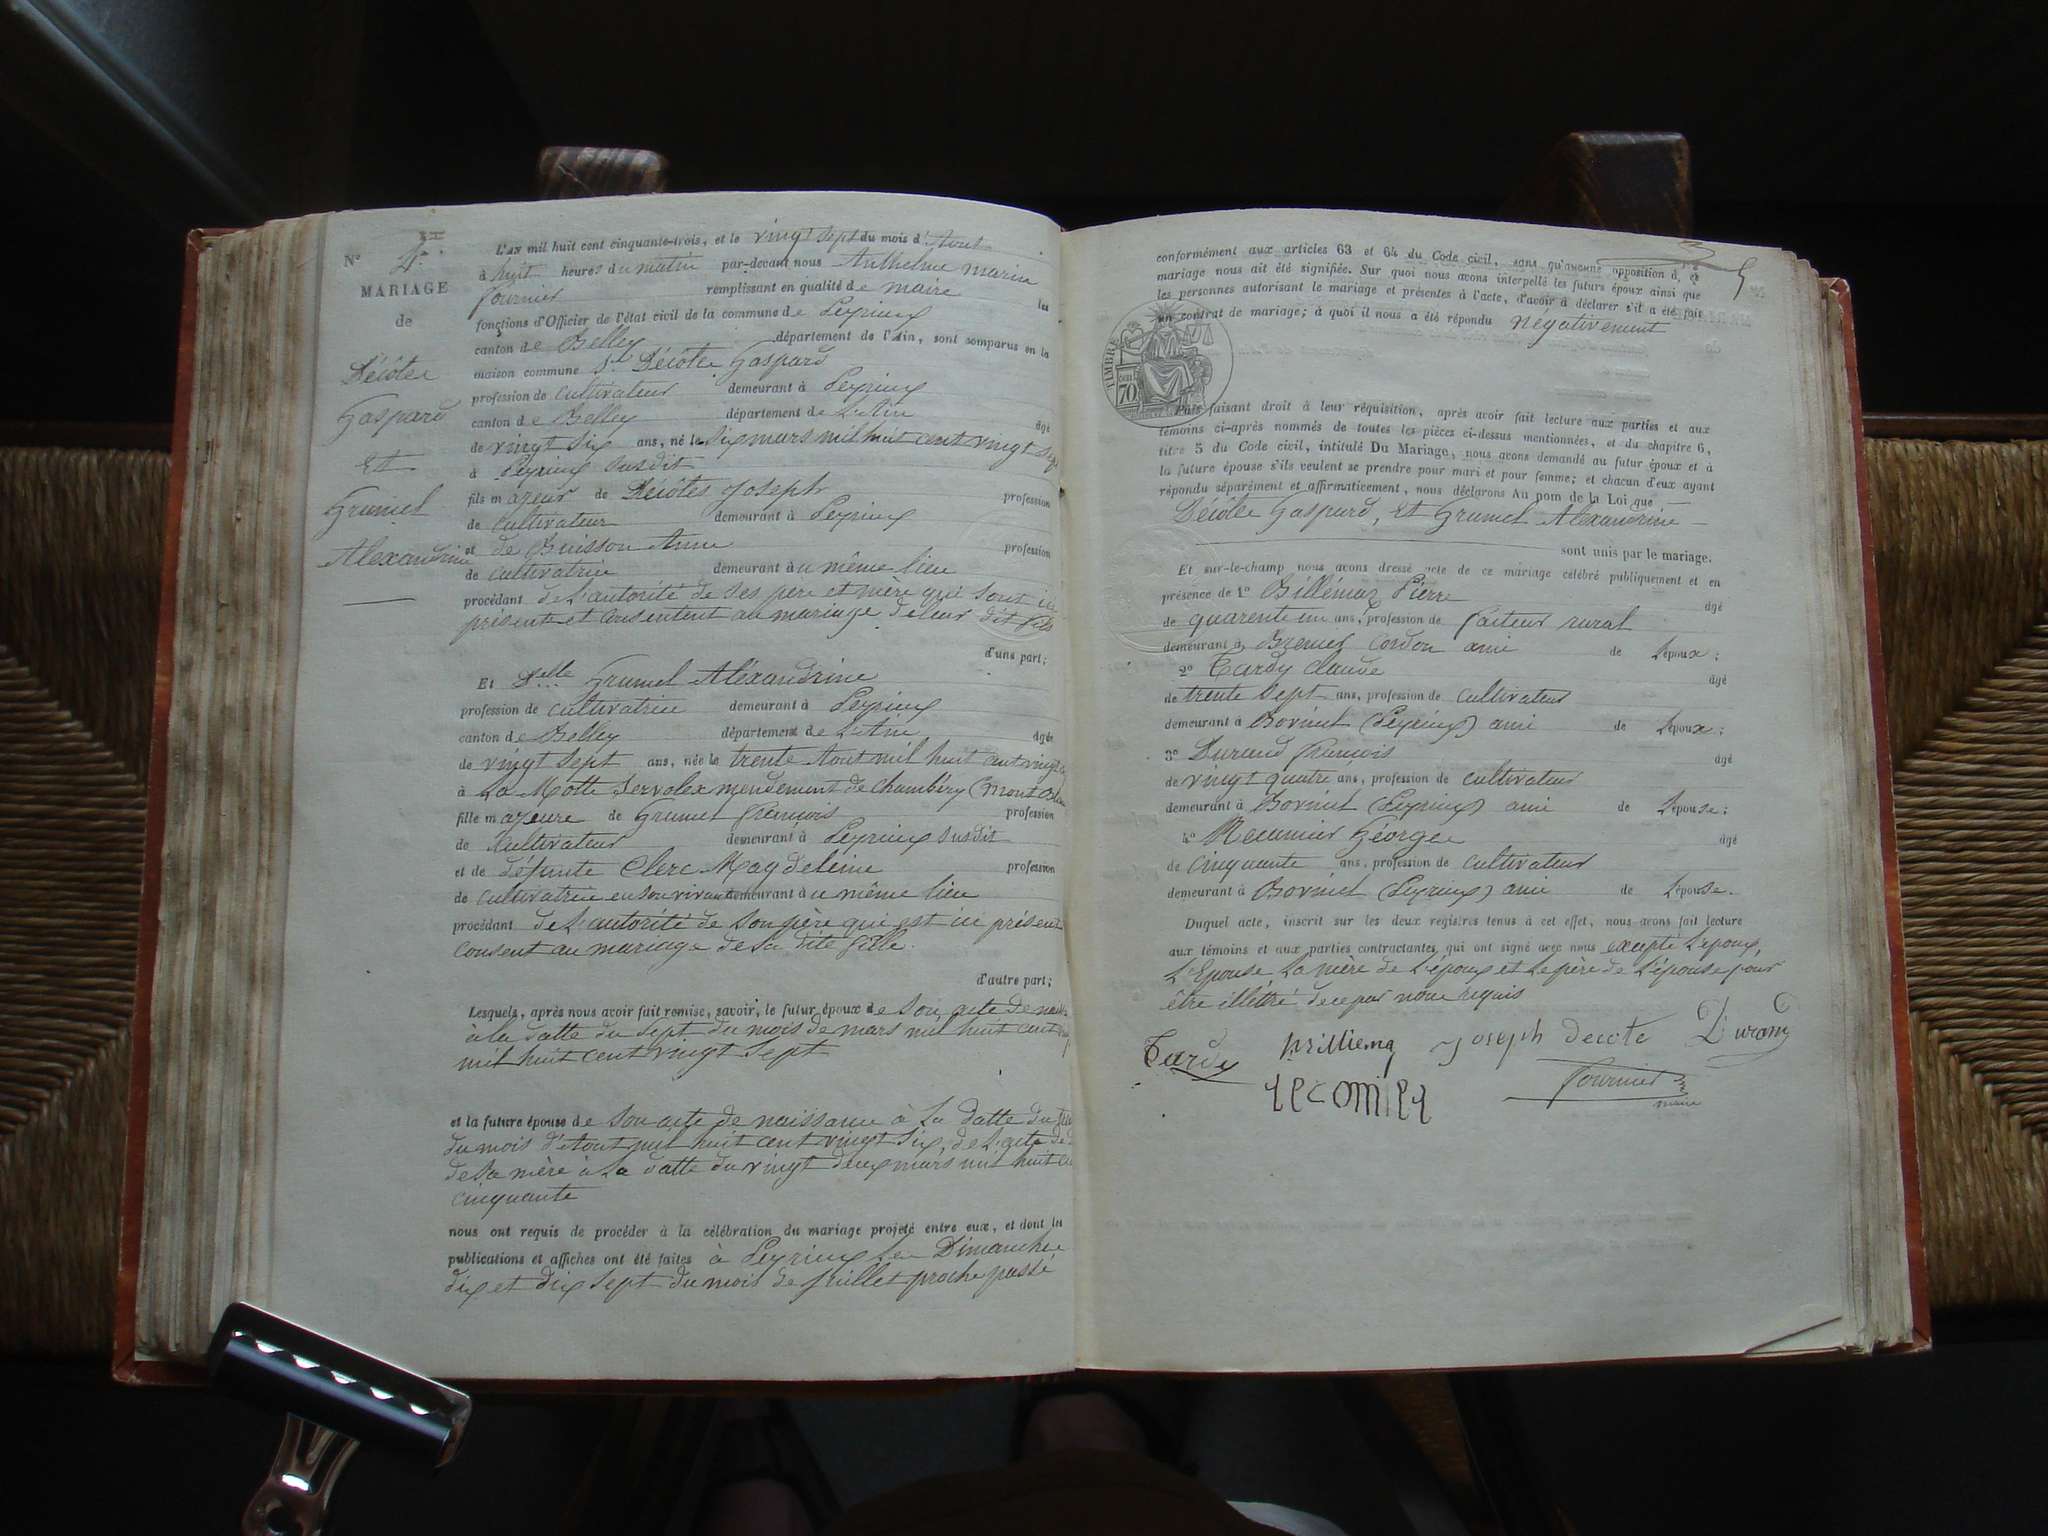 N° 4.
MARIAGE
de
Déiôte
Gaspard
Et
Grumel
Alexandrine
L'AN mil huit cent cinquante-trois, et le vingt sept du mois d'Aout
à huit heures du matin par-devant nous Anthelme marin
fournier remplissant en qualité de maire les
fonctions d'Officier de l'état civil de la commune de Peyrieux
canton de Belley département de l'Ain, sont comparus en la
maison commune Sr. Déiôte Gaspard
profession de cultivateur demeurant à Peyrieux
canton de Belley département de L'Ain âgé
de vingt six ans, né le six mars mil huit cent vingt sept
à Peyrieux susdit
fils majeur de Déiôtes Joseph profession
de cultivateur demeurant à Peyrieux
et de Buisson Anne profession
de cultivatrice demeurant au même lieu
procédant de l'autorité de ses père et mère qui sont ici
présents et consentent au mariage de leur dit fils
d'une part;
Et Delle Grumel Aléxandrine
profession de cultivatrice demeurant à Peyrieux
canton de Belley département de L'Ain âgée
de vingt sept ans, née le trente Aout mil huit cent vingt
à La Motte Servolex mendement de Chambéry (Mont Blanc
fille majeure de Grumel François profession
de Cultivateur demeurant à Peyrieux susdit
et de défunte Clerc Magdeleine profession
de cultivatrice en son vivant demeurant au même lieu
procédant de l'autorité de son père qui est ici présent
consent au mariage de sa dite fille.
d'autre part;
Lesquels, après nous avoir fait remise, savoir, le futur époux de son acte de
à la datte du sept du mois de mars mil huit cent
mil huit cent vingt sept
et la future épouse de son acte de naissance à la datte du
du mois d'Aout mil huit cent vingt six, de l'acte de
de sa mère à la datte du vingt deux mars mil huit
cinquante
nous ont requis de procéder à la célébration du mariage projeté entre eux, et dont les
publications et affiches ont été faites à Peyrieux les Dimanches
dix et dix sept du mois de juillet proche passé
5
conformément aux articles 63 et 64 du Code civil, sans qu'aucune opposition à ce
mariage nous ait été signifiée. Sur quoi nous avons interpellé les futurs époux ainsi que
les personnes autorisant le mariage et présentes à l'acte, d'avoir à déclarer s'il a été fait
un contrat de mariage; à quoi il nous a été répondu négativement
TIMBRE
70
Puis faisant droit à leur réquisition, après avoir fait lecture aux parties et aux
témoins ci-après nommés de toutes les pièces ci-dessus mentionnées, et du chapitre 6,
titre 5 du Code civil, intitulé Du Mariage, nous avons demandé au futur époux et à
la future épouse s'ils veulent se prendre pour mari et pour femme; et chacun d'eux ayant
répondu séparément et affirmativement, nous déclarons Au nom de la Loi que
Déiôte Gaspard, Et Grumel Alexandrine
sont unis par le mariage.
Et sur-le-champ nous avons dressé acte de ce mariage célébré publiquement et en
présence de 1° Billémaz Pierre âgé
de quarente un ans, profession de facteur rural
demeurant à Bregnier Cordon ami de L'époux;
2° Tardy Claude âgé
de trente sept ans, profession de cultivateur
demeurant à Bovinel (Peyrieux) ami de L'époux;
3° Durand François âgé
de vingt quatre ans, profession de cultivateur
demeurant à Bovinel (Peyrieux) ami de L'épouse;
4° Recumier Géorge âgé
de cinquante ans, profession de cultivateur
demeurant à Bovinel (Peyrieux) ami de L'épouse.
Duquel acte, inscrit sur les deux registres tenus à cet effet, nous avons fait lecture
aux témoins et aux parties contractantes qui ont signé avec nous excepté L'époux,
L'Epouse La mère de L'époux et Le père de L'épouse pour
être illétré de ce par nous requis
Tardy Billiemaz Joseph decote Durand
fournier
maire